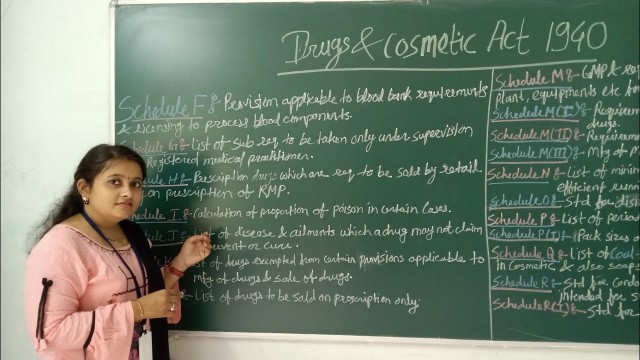 Drugs & cosmetic Act 1940
Schedule F:- Provision applicable to blood bank requirements
& licensing to process blood components.
hedule G:- List of sub req to be taken only under supervision
Registered medical practitioner.
hedule H:- Prescription drugs which are req to be sold by retail
on prescription of RMP.
hedule I:- Calculation of proportion of poison in certain cases.
dule J:- List of disease & ailments which a drug may not claim
prevent or cure.
of drugs exempted from certain provisions applicable to
mfg of drugs & sale of drugs.
:- List of drugs to be sold on prescription only.
Schedule M:- GMP &
plant, equipments etc for
Schedule M(I):- Requirem
drugs.
Schedule M(II):- Requirem
Schedule M(III):- Mfg of m
Schedule N:- List of minim
efficient runn
Schedule O:- Std for disin
Schedule P:- List of perio
Schedule P(I):- Pack sizes
Schedule Q:- List of Coal-
in Cosmetic & also soap
Schedule R:- Std for Condo
intended for
Schedule R(I):- Std for